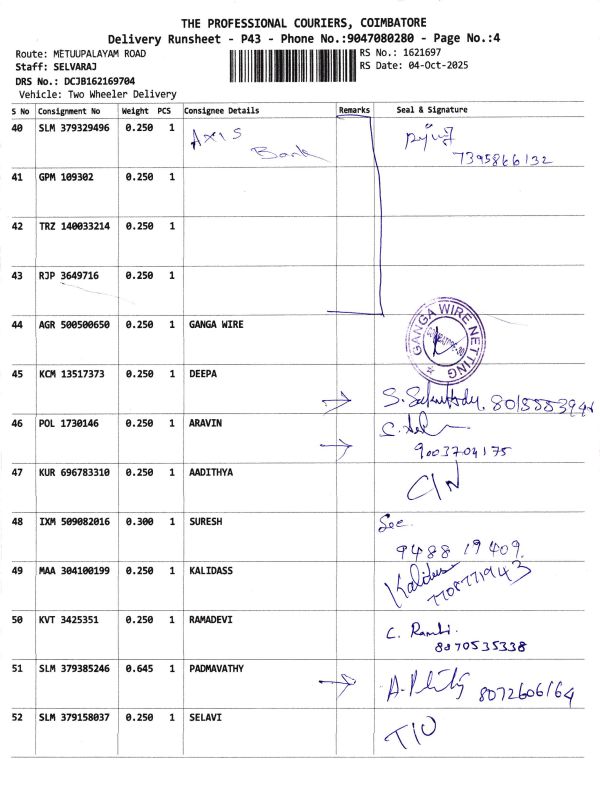 THE PROFESSIONAL COURIERS, COIMBATORE
Delivery Runsheet - P43 - Phone No.:9047080280 - Page No.:4
Route: METUUPALAYAM ROAD RS No.: 1621697
Staff: SELVARAJ RS Date: 04-Oct-2025
DRS No.: DCJB162169704
Vehicle: Two Wheeler Delivery
S No Consignment No Weight PCS Consignee Details Remarks Seal & Signature
40 SLM 379329496 0.250 1 Axis Bank
7395866132
41 GPM 109302 0.250 1
42 TRZ 140033214 0.250 1
43 RJP 3649716 0.250 1
44 AGR 500500650 0.250 1 GANGA WIRE GANGA WIRE NETTING
45 KCM 13517373 0.250 1 DEEPA
46 POL 1730146 0.250 1 ARAVIN
9003704175
47 KUR 696783310 0.250 1 AADITHYA C/N
48 IXM 509082016 0.300 1 SURESH See
9488 19 409.
49 MAA 304100199 0.250 1 KALIDASS Kalidass
7708771943
50 KVT 3425351 0.250 1 RAMADEVI
8070535338
51 SLM 379385246 0.645 1 PADMAVATHY 8072606164
52 SLM 379158037 0.250 1 SELAVI